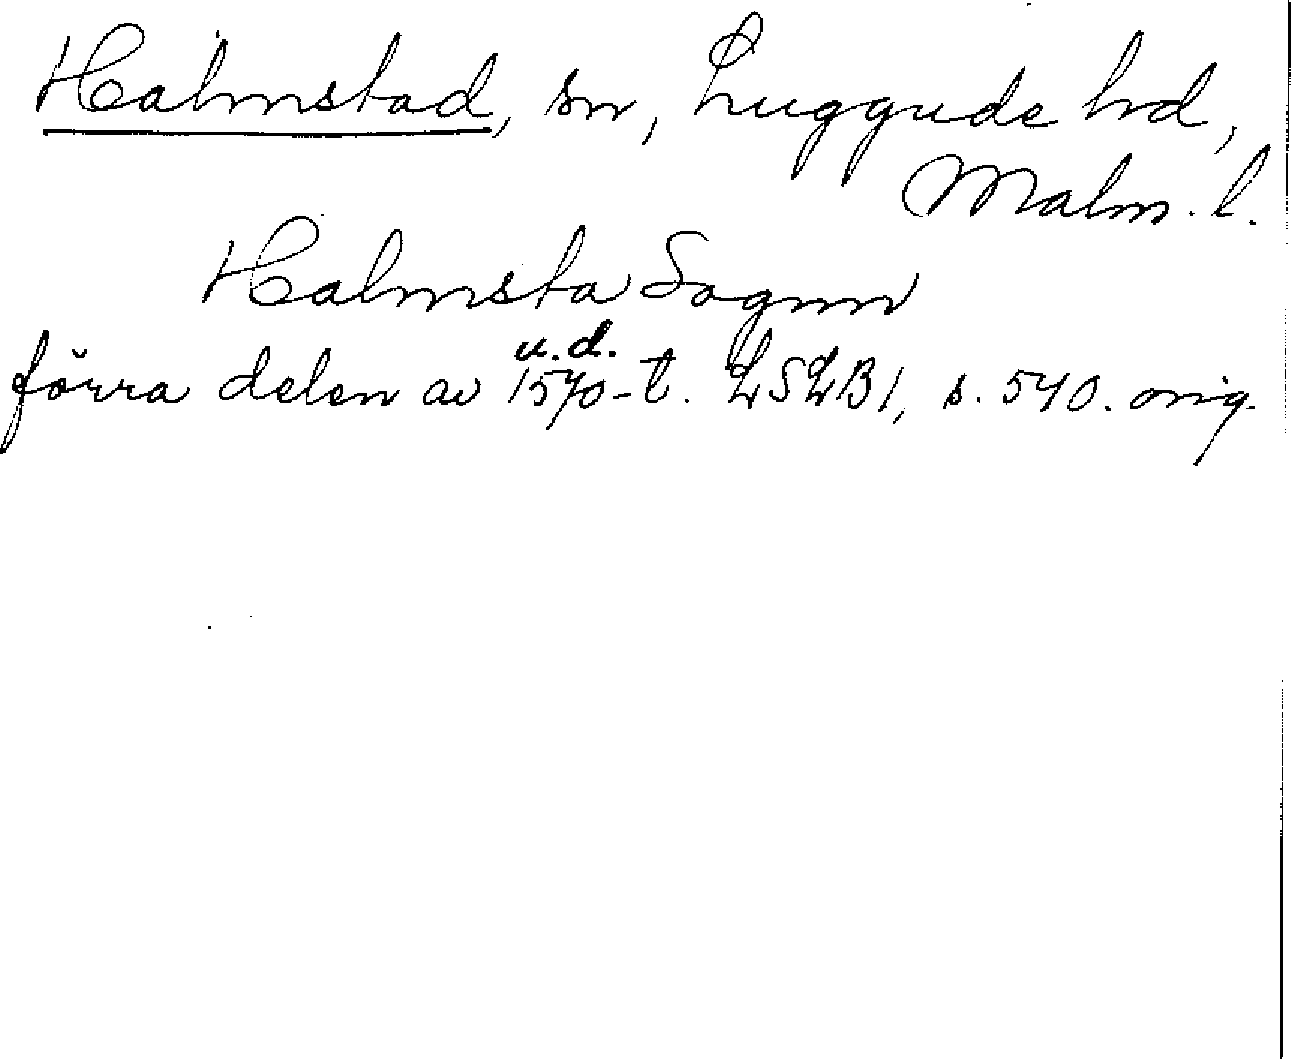 Halmstad, sn, Luggude hd,
Malm. l.
Halmsta Sognn
u.d.
förra delen av 1570-t. LSLB 1, s. 540. orig.